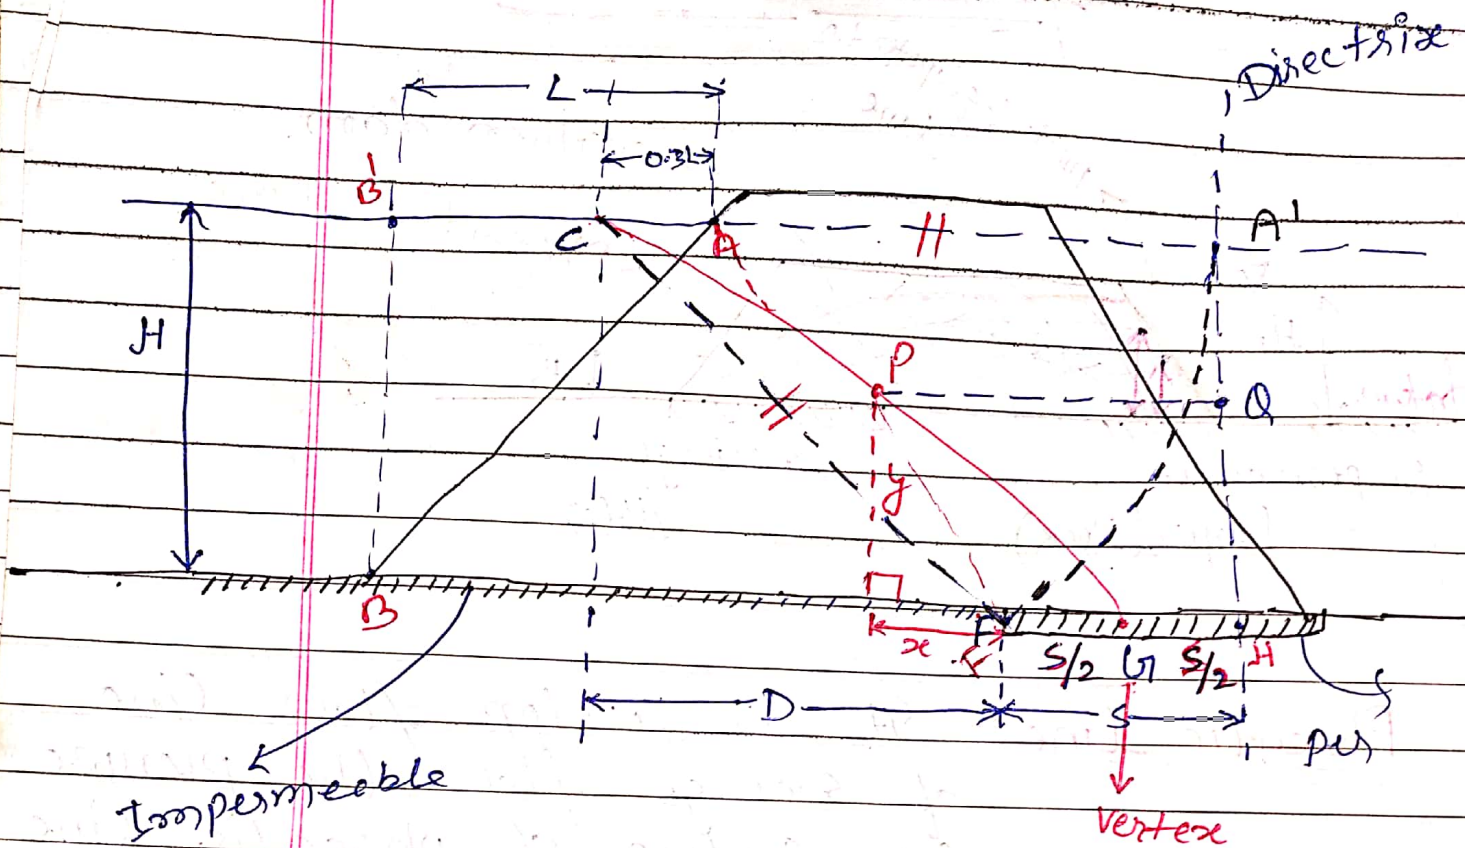 Directrix
L
0.3L
B'
C
A
A'
H
P
Q
y
B
x
F
S/2
G
S/2
H
D
S
Impermeable
per
Vertex